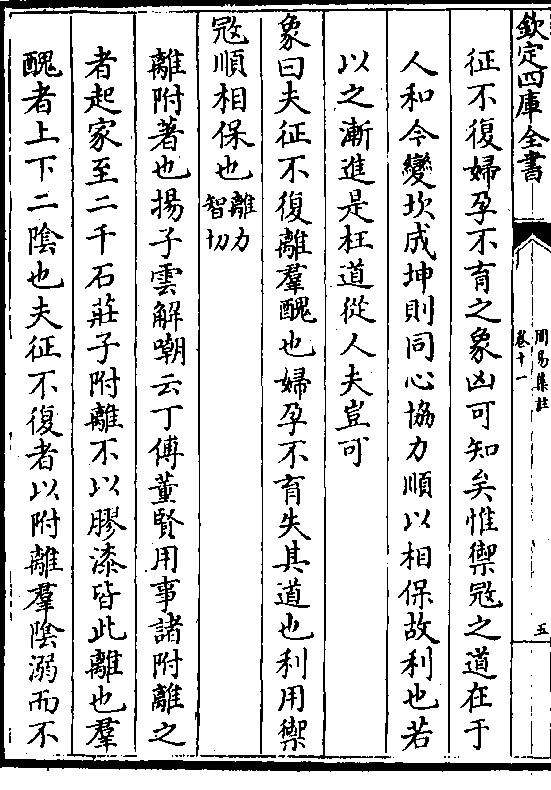 欽定四庫全書
周易集註
卷十一
五
征不復婦孕不育之象凶可知矣惟禦寇之道在于
人和今變坎成坤則同心協力順以相保故利也若
以之漸進是枉道從人夫豈可
象曰夫征不復離羣醜也婦孕不育失其道也利用禦
寇順相保也離力智切
離附著也揚子雲解嘲云丁傅董賢用事諸附離之
者起家至二千石莊子附離不以膠漆皆此離也羣
醜者上下二陰也夫征不復者以附離羣陰溺而不